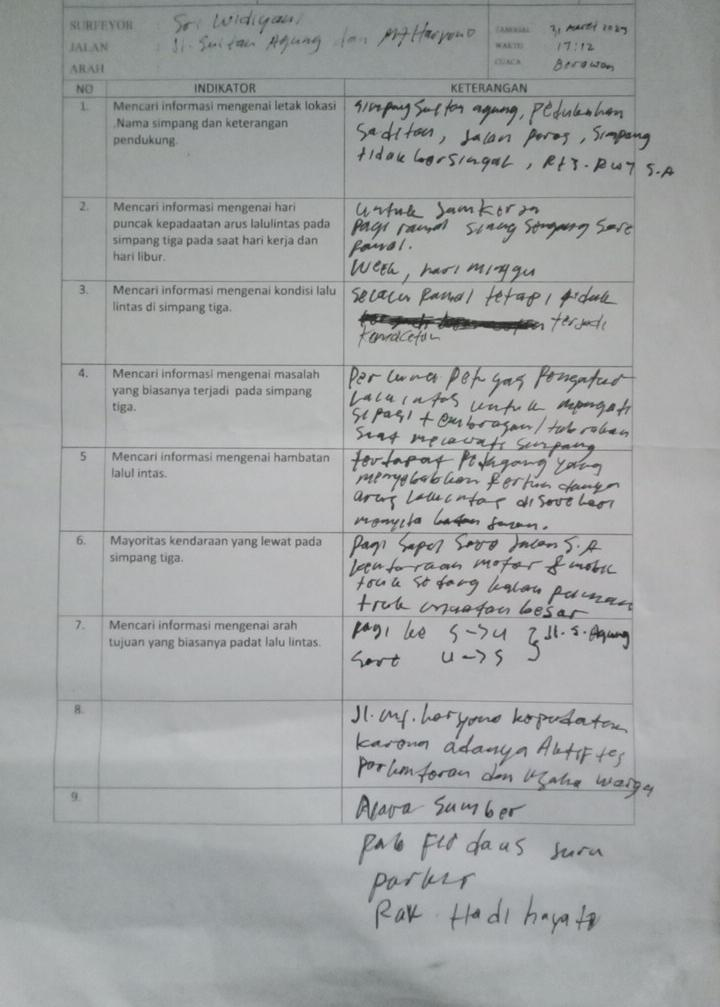 SURVEYOR : Sri Widiyani TANGGAL 31 Maret 2023
JALAN : Jl. Sultan Agung dan MT Haryono WAKTU 17:12
ARAH CUACA Berawan
NO INDIKATOR KETERANGAN
1. Mencari informasi mengenai letak lokasi
.Nama simpang dan keterangan
pendukung.
Simpang Sultan agung,
Jalan poros, Simpang
tidak bersingal, Rt 3. RW 7 S.A
2. Mencari informasi mengenai hari
puncak kepadaatan arus lalulintas pada
simpang tiga pada saat hari kerja dan
hari libur.
Untuk Jam kerja
pagi ramai siang Sore
ramai.
Week, hari minggu
3. Mencari informasi mengenai kondisi lalu
lintas di simpang tiga.
Selalu Ramai tetapi tidak
terjadi
kemacetan
4. Mencari informasi mengenai masalah
yang biasanya terjadi pada simpang
tiga.
Per lunya Petugas Pengatur
lalu lintas untuk
/ tabrakan
Saat melewati simpang
5 Mencari informasi mengenai hambatan
lalul intas.
terdapat Pedagang yang
menyebabkan
arus lalu lintas di Sore hari
menyita jalan.
6. Mayoritas kendaraan yang lewat pada
simpang tiga.
pagi Sore Jalan S.A
kendaraan motor & mobil
truk sedang kalau
truk muatan besar
7. Mencari informasi mengenai arah
tujuan yang biasanya padat lalu lintas.
pagi ke S->U } Jl. S. Agung
Sore U->S
8.
Jl. mt. haryono kepadatan
karena adanya Aktifitas
perkantoran dan Usaha warga
9.
Nara Sumber
Pak Firdaus juru
parkir
Pak Hadi hayato